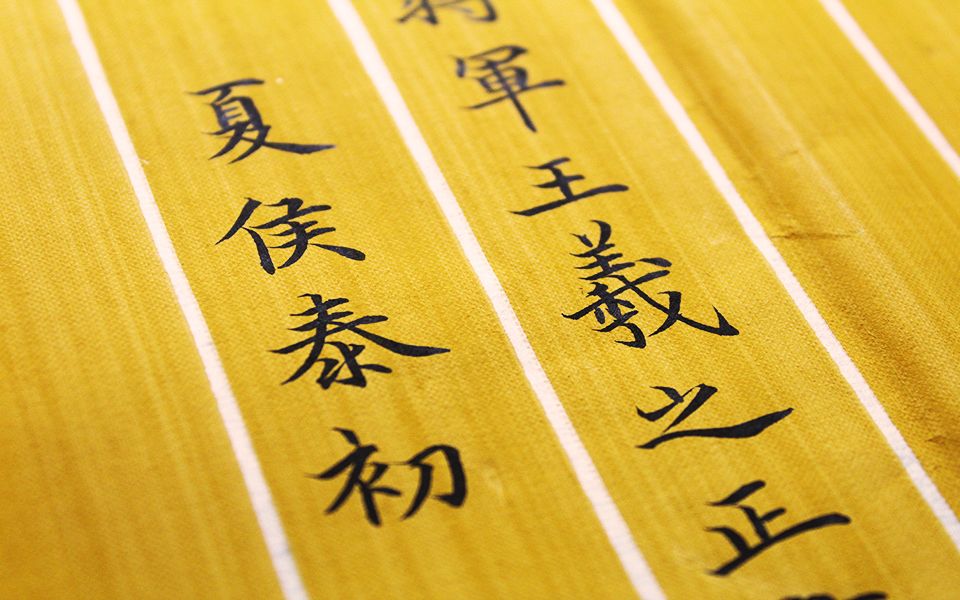 將軍王羲之正
夏侯泰初